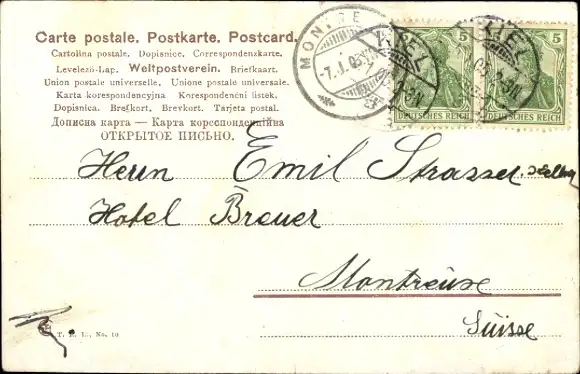 Carte postale. Postkarte. Postcard.
Cartolina postale. Dopisnice. Correspondenzkarte.
Levelező-Lap. Weltpostverein. Briefkaart.
Union postale universelle. Unione postale universale.
Karta korespondencyjna. Korespondenční listek.
Dopisnica. Brefkort. Brevkort. Tarjeta postal.
Дописна карта — Карта кореспонденційна
ОТКРЫТОЕ ПИСЬМО.
MONTRE
-7.I.05
KIEL
KIEL
5
5
DEUTSCHES REICH
DEUTSCHES REICH
Herrn Emil Strasser
Hotel Breuer
Montreuse
Suisse
No. 10